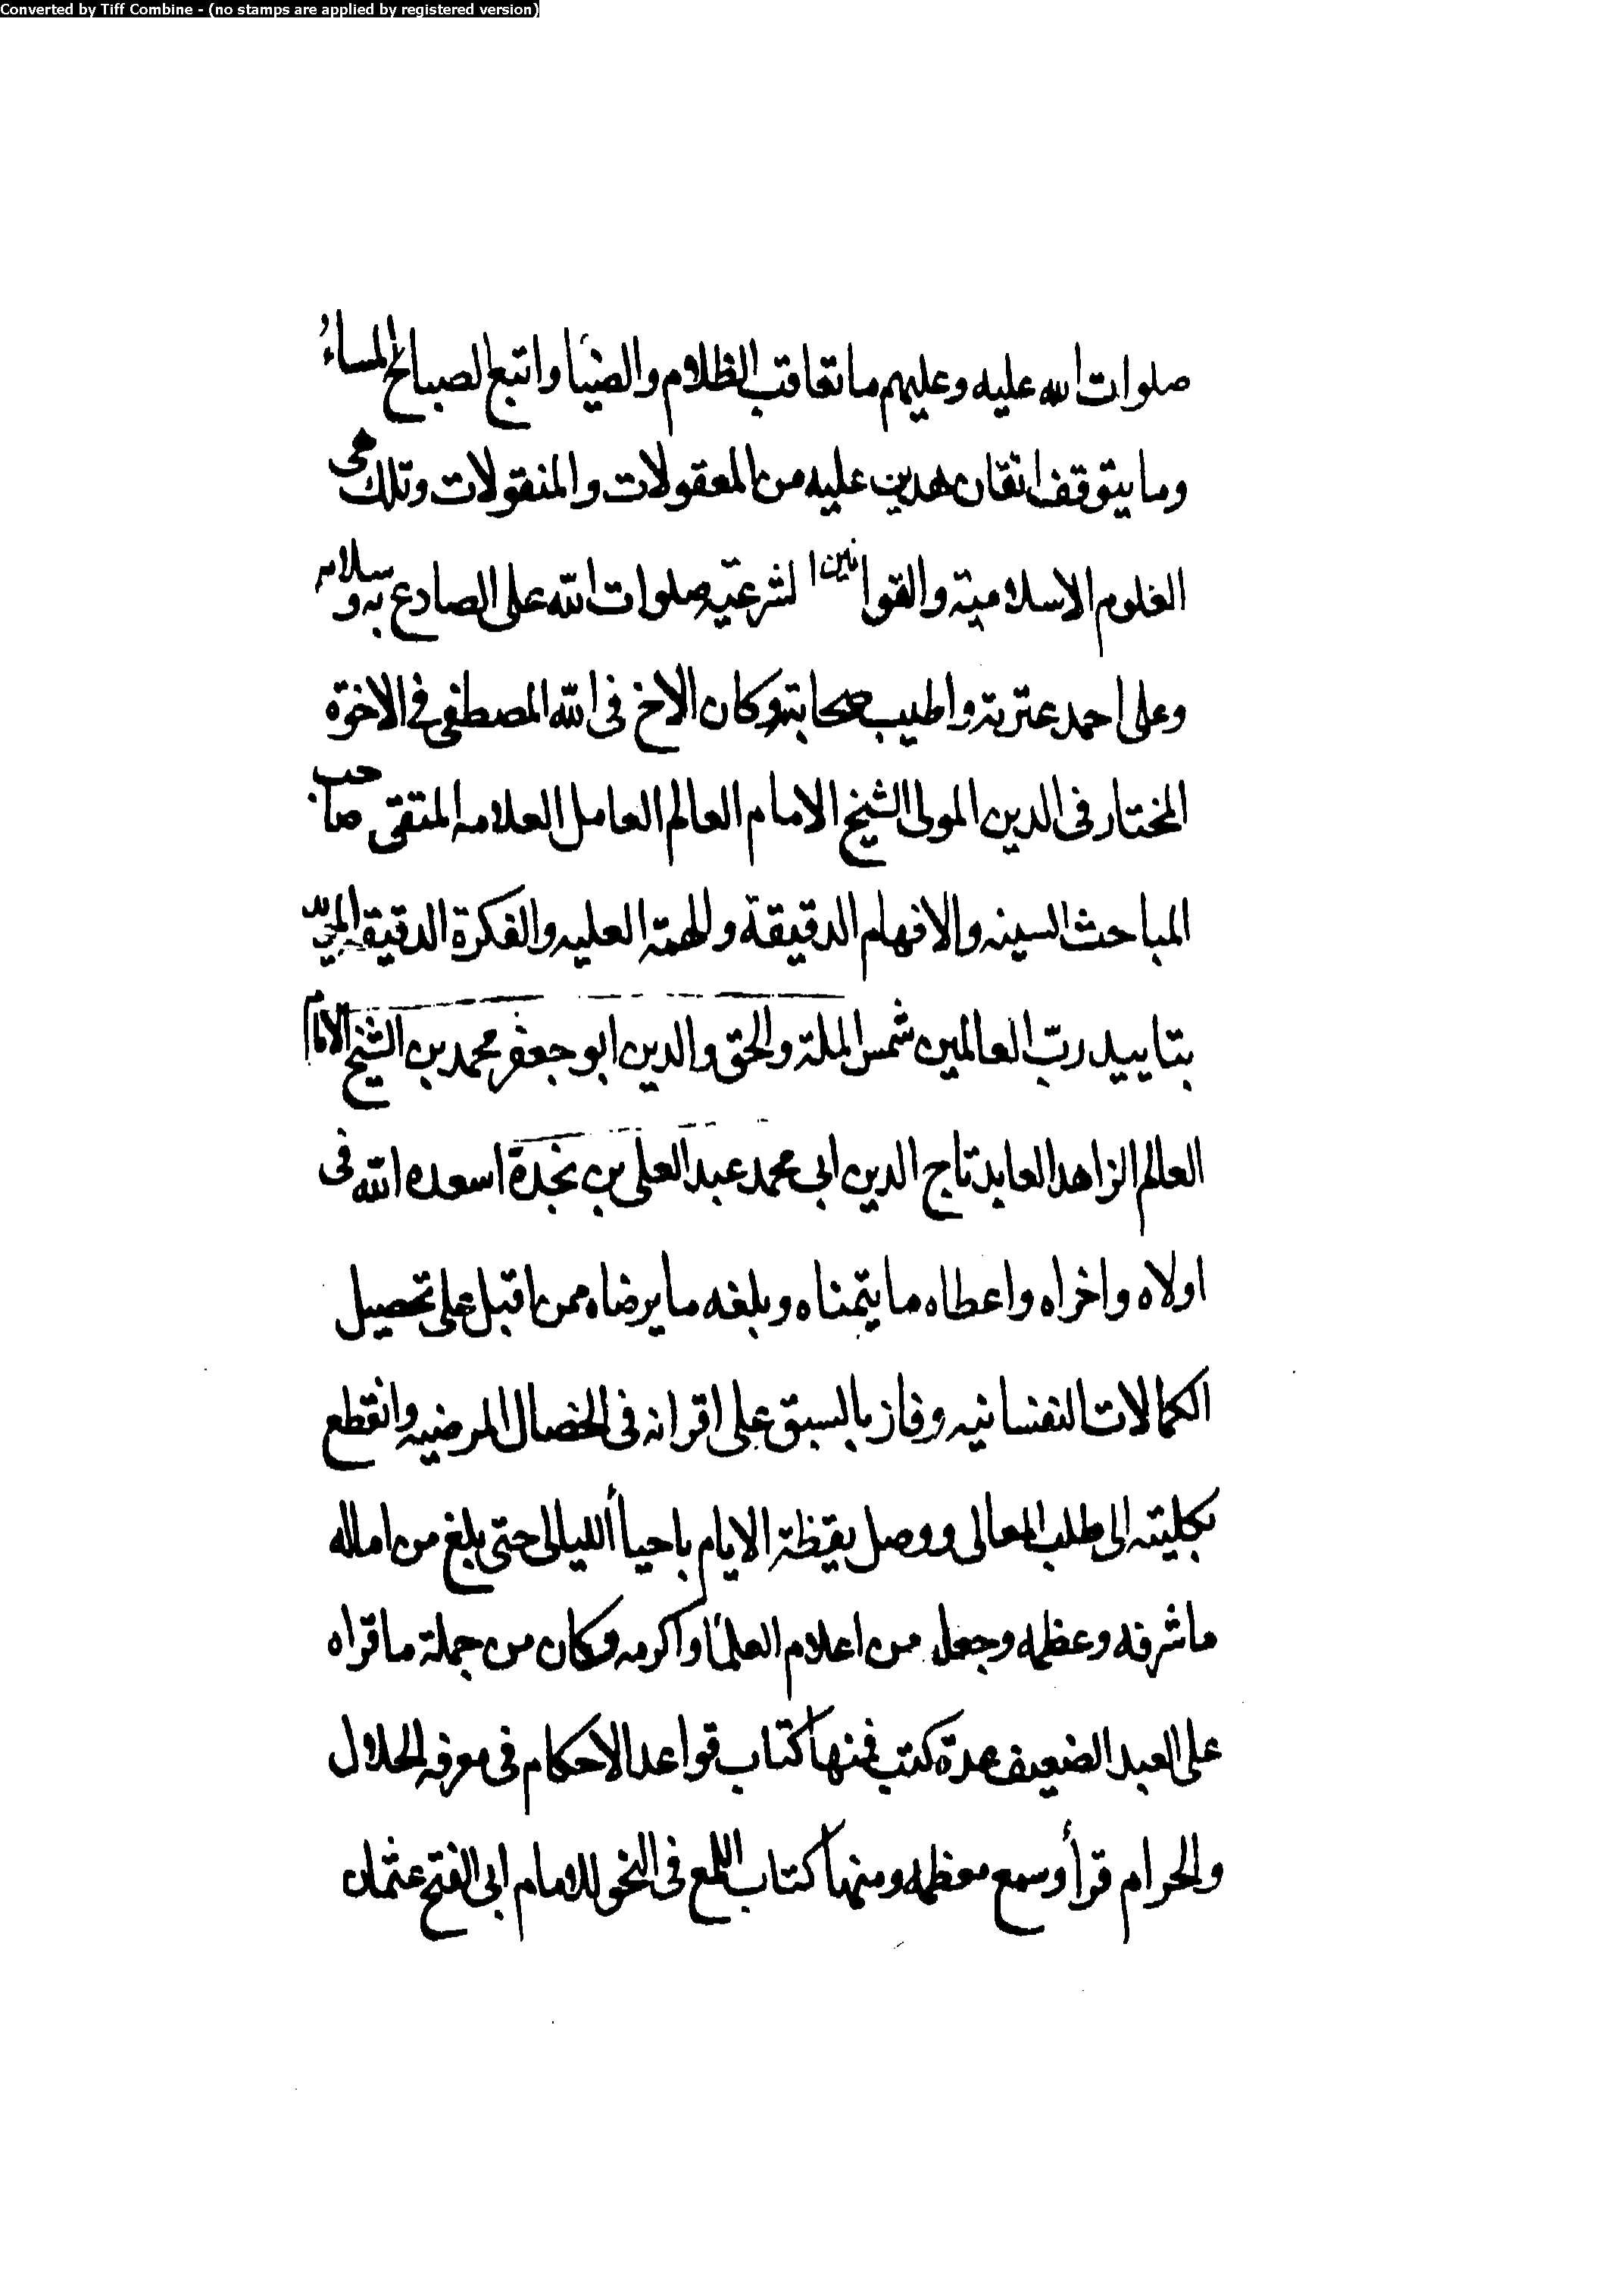 Converted by Tiff Combine - (no stamps are applied by registered version)
صلوات الله عليه وعليهم ما تعاقب الظلام والضيا واتبع الصباح المساء
وما يتوقف اتقان هدين عليه من المعقولات والمنقولات وتلك هى
العلوم الاسلامية والقوانين الشرعيّه صلوات الله على الصادع به وسلامه
وعلى احمد عترته واطيب صحابته وكان الاخ فى الله المصطفى فى الاخوّة
المختار فى الدين المولى الشيخ الامام العالم العامل العلامه المتقى صاحب
المباحث السينه والافهام الدقيقة والهمّة العليه والفكرة الدقيقه
بتاييد ربّ العالمين شمس الملة والحق والدين ابو جعفر محمد بن الشيخ الامام
العالم الزاهد العابد تاج الدين ابى محمد عبد العلى بن نجدة اسعده الله فى
اولاه واخراه واعطاه ما يتمناه وبلغه ما يرضاه ممن اقبل على تحصيل
الكمالات النفسانيه وفاز بالسبق على اقرانه فى الخصال المرضيه وانقطع
بكليته الى طلب المعالى ووصل يقظة الايام باحيا الليالى حتى بلغ من اماله
ما شرفه وعظمه وجعل من اعلام العلما واكرمه وكان من جملة ما قراه
على العبد الضعيف عدة كتب فمنها كتاب قواعد الاحكام فى معرفه الحلال
والحرام قرأ وسمع معظمه ومنها كتاب اللمع فى النحو للامام ابى الفتح عثمان